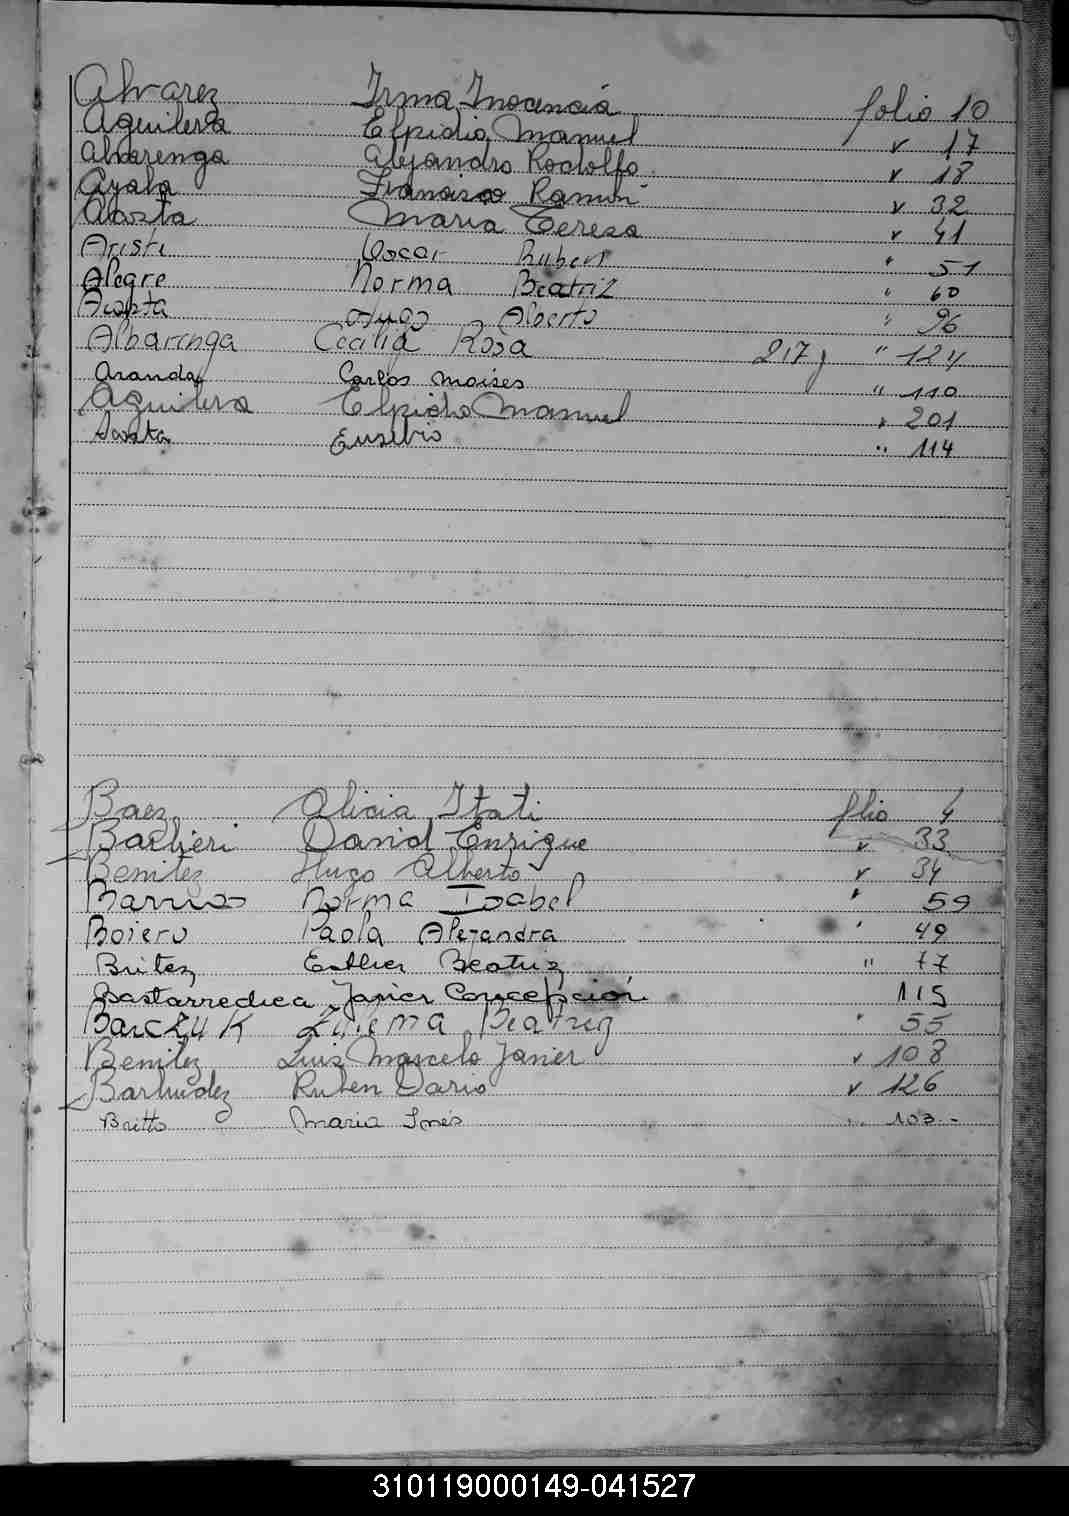 Alvarez Irma Inocencia folio 10
Aguilera Elpidio Manuel " 17
Alvarenga Alejandro Rodolfo " 18
Ayala Francisco Ramón " 32
Acosta Maria Teresa " 41
Aristi Oscar Ruben " 51
Alegre Norma Beatriz " 60
Acosta Hugo Alberto " 96
Albarenga Cecilia Rosa 217 " 124
Aranda Carlos Moises " 110
Aguilera Elpidio Manuel " 201
Acosta Eusebio " 114
Baez Alicia Itati folio 4
Barbieri David Enrique " 33
Benitez Hugo Alberto " 34
Barrios Norma Isabel " 59
Boiero Paola Alejandra " 49
Britez Esther Beatriz " 77
Bastarrechea Javier Concepcion 115
Barczuk Zulema Beatriz " 55
Benitez Luis Marcelo Javier " 108
Barmudez Ruben Dario " 126
Britto Maria Inés " 103.-
310119000149-041527